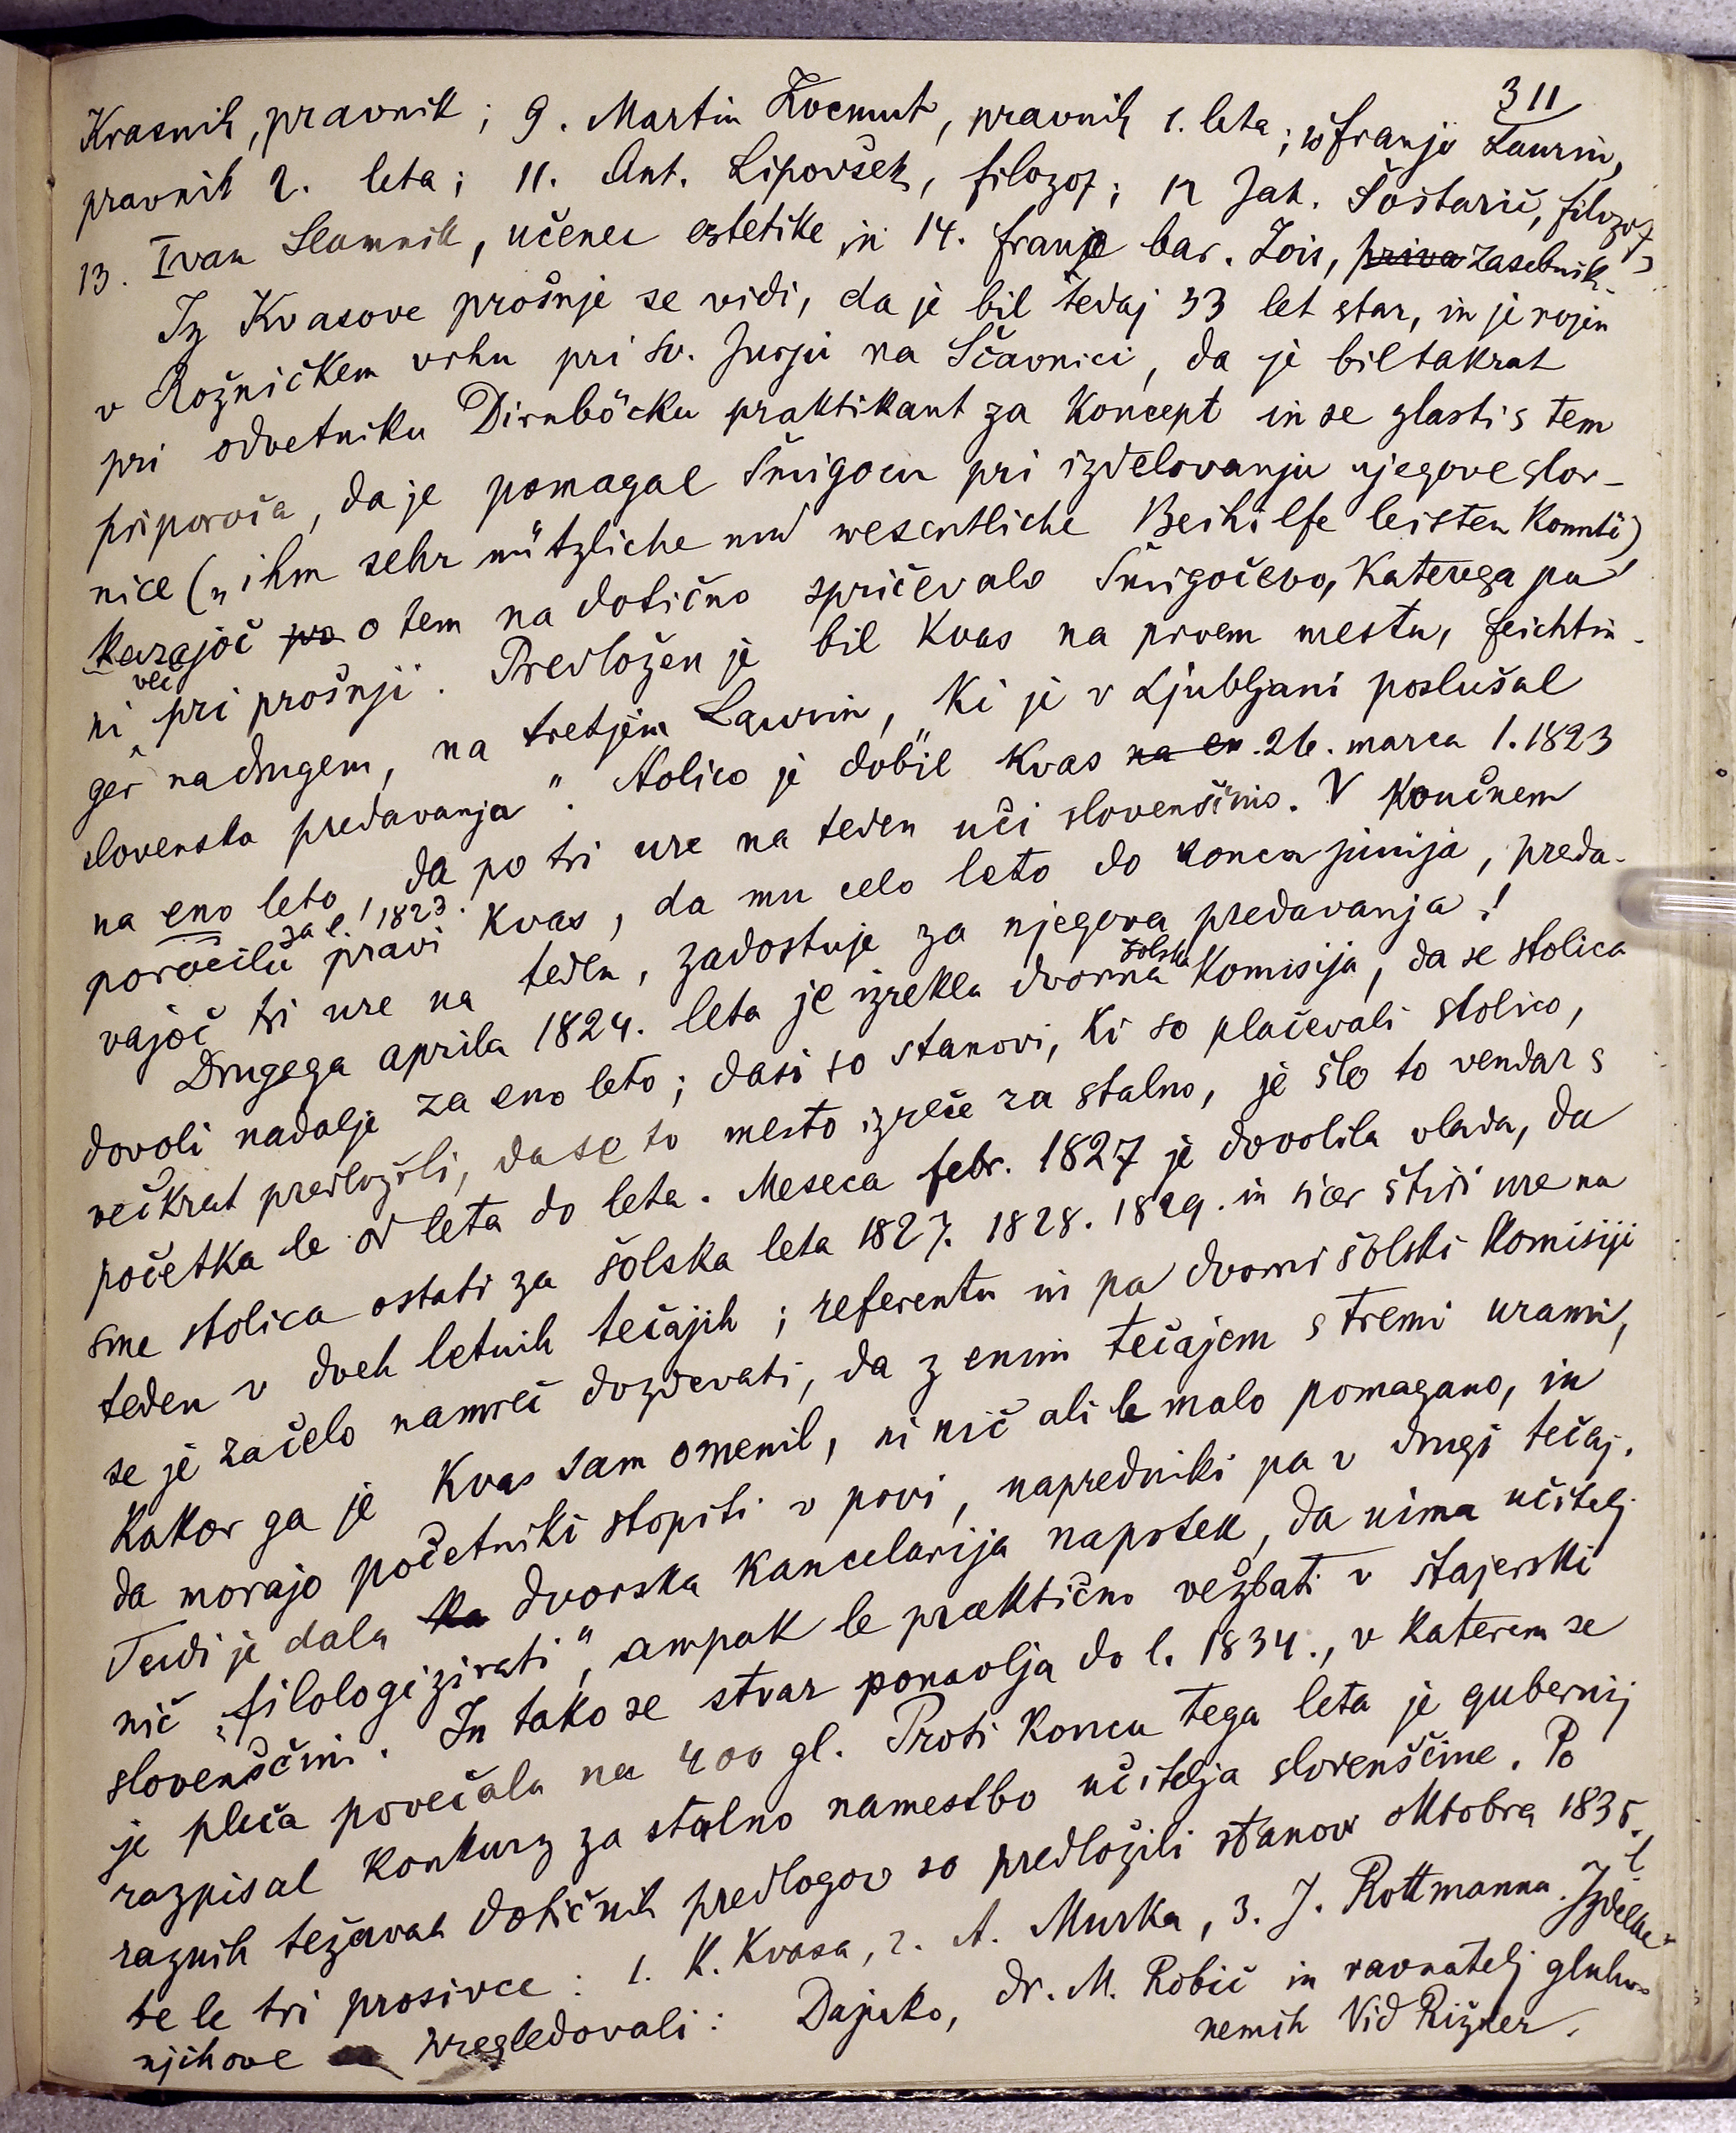 311
Krasnik, pravnik; 9. Martin Kocmut, pravnik 1. leta; 10 Franjo Laurin,
pravnik 2. leta; 11. Ant. Lipovšek, filozof; 12 Jak. Šoštarič, filozof
13. Ivan Slamnik, učenec estetike in 14. Franjo bar. Zois, priva zasebnik.
Iz Kvasove prošnje se vidi, da je bil tedaj 33 let star, in je rojen
v Rožničkem vrhu pri sv. Jurju na Ščavnici, da je bil takrat
pri odvetniku Dirnböcku praktikant za koncept in se zlasti s tem
priporoča, da je pomagal Šmigocu pri izdelovanju njegove slov-
nice („ihm sehr nützliche und wesentliche Beihilfe leisten konnte)
kazajoč po o tem na dotično spričevalo Šmigočevo, katerega pa
ni več pri prošnji. Predložen je bil Kvas na prvem mestu, Feichtin-
ger na drugem, na tretjem Laurin, „ki je v Ljubljani poslušal
slovenska predavanja". Stolico je dobil Kvas na en 26. marca l. 1823
na eno leto, da po tri ure na teden uči slovenščino. V končnem
poročilu za l. 1823. pravi Kvas, da mu celo leto do konca junija, preda-
vajoč tri ure na teden, zadostuje za njegova predavanja!
Drugega aprila 1824. leta je izrekla dvorna šolska komisija, da se stolica
dovoli nadalje za eno leto; dasi so stanovi, ki so plačevali stolico,
večkrat predložili, da se to mesto izreče za stalno, je šlo to vendar s
početka le od leta do leta. Meseca febr. 1827 je dovolila vlada, da
sme stolica ostati za šolska leta 1827. 1828. 1829. in sicer štiri ure na
teden v dveh letnih tečajih; referentu in pa dvorni šolski komisiji
se je začelo namreč dozdevati, da z enim tečajem s tremi urami,
kakor ga je Kvas sam omenil, ni nič ali le malo pomagano, in
da morajo početniki stopiti v prvi, napredniki pa v drugi tečaj.
Tudi je dala ka dvorska kancelarija napotek, da nima učitelj
nič „filologizirati", ampak le praktično vežbati v štajerski
slovenščini. In tako se stvar ponavlja do l. 1834., v katerem se
je plača povečala na 400 gl. Proti koncu tega leta je gubernij
razpisal konkurz za stalno namestbo učitelja slovenščine. Po
raznih težavah dotičnih predlogov so predložili stanovi oktobra 1835. l
te le tri prosivce: 1. K. Kvasa, 2. A. Murka, 3. J. Rottmanna. Izdelke
njihove pregledovali: Dajnko, dr. M. Robič in ravnatelj gluho-
nemih Vid Rižner.